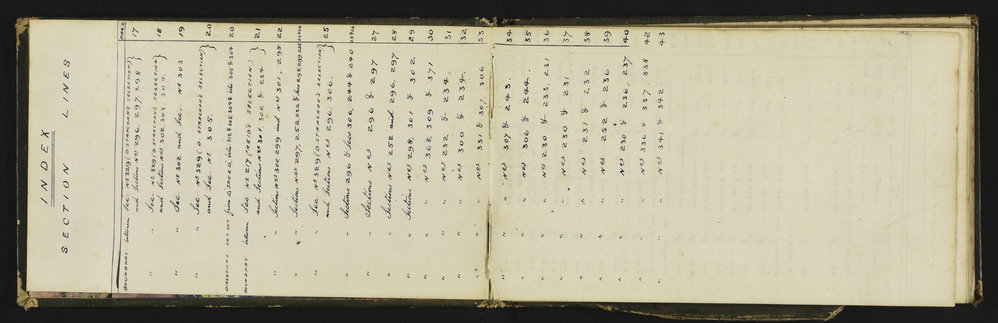 INDEX
SECTION LINES
PAGE
BOUNDARY between Sec. No 329 (D. STRACHAN'S SELECTION)
and Sections Nos 296, 297, 298 } 17
" " Sec. No 329 (D. STRACHAN'S SELECTION)
and Sections Nos 302, 303, 304. } 18
" " Sec No 302 and Sec. No 303 19
" " Sec No 329 (D. STRACHAN'S SELECTION)
and Sec No 305. } 20
DIRECTIONS SET OUT from 20
BOUNDARY between Sec No 217 (REID'S SELECTION)
and Sections Nos 301, 300, & 234 } 21
" " Sections Nos 300, 299 and Nos 301, 298 22
" " Sections Nos 297, 252, 232 & Nos 298, 299
" " Sec No 329 (D. STRACHAN'S SELECTION)
and Sections Nos 296, 306. } 25
" " Sections 296 & Secs 306, 244 & 240
" " Sections Nos 296 & 297 27
" " Sections Nos 252 and 296, 297 28
" " Sections Nos 298, 301 & 302 29
" " " Nos 308, 309 & 371 30
" " " Nos 232 & 234 31
" " " Nos 300 & 234. 32
" " " Nos 331 & 307, 306 33
" " " Nos 307 & 243. 34
" " " Nos 306 & 244. 35
" " " Nos 230 & 233, 231 36
" " " Nos 230 & 231 37
" " " Nos 231 & 232. 38
" " " Nos 252 & 236 39
" " " Nos 230 & 236, 237 40
" " " Nos 336 & 337, 338 42
" " " Nos 341 & 342. 43